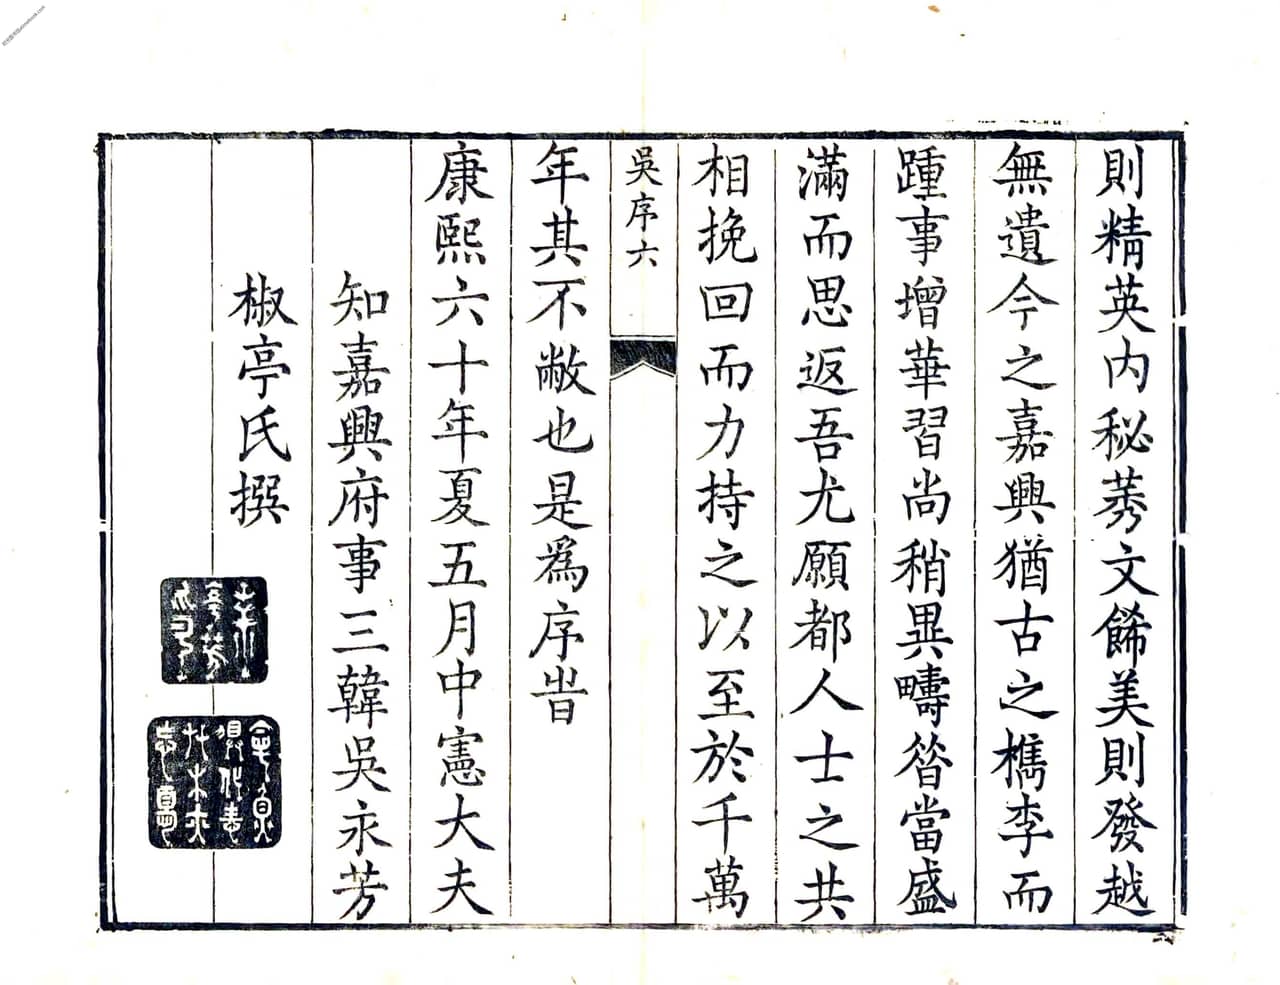 則精英内秘莠文餙美則發越
無遺今之嘉興猶古之檇李而
踵事増華習尚稍異疇昝當盛
滿而思返吾尤願都人士之共
相挽回而力持之以至於千萬
吳序六
年其不敝也是爲序旹
康熙六十年夏五月中憲大夫
知嘉興府事三韓吳永芳
椒亭氏撰